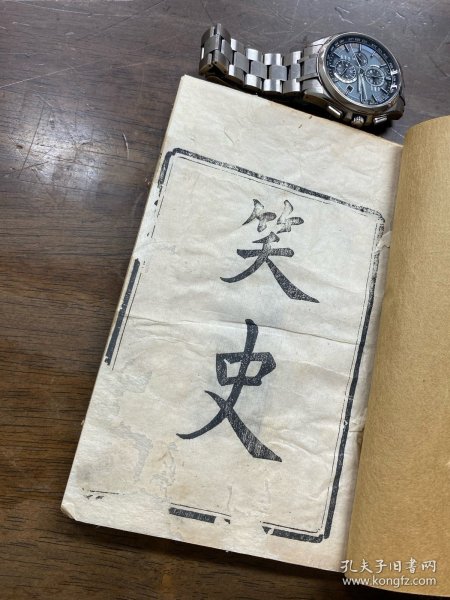 笑史
孔夫子旧书网
www.kongfz.com